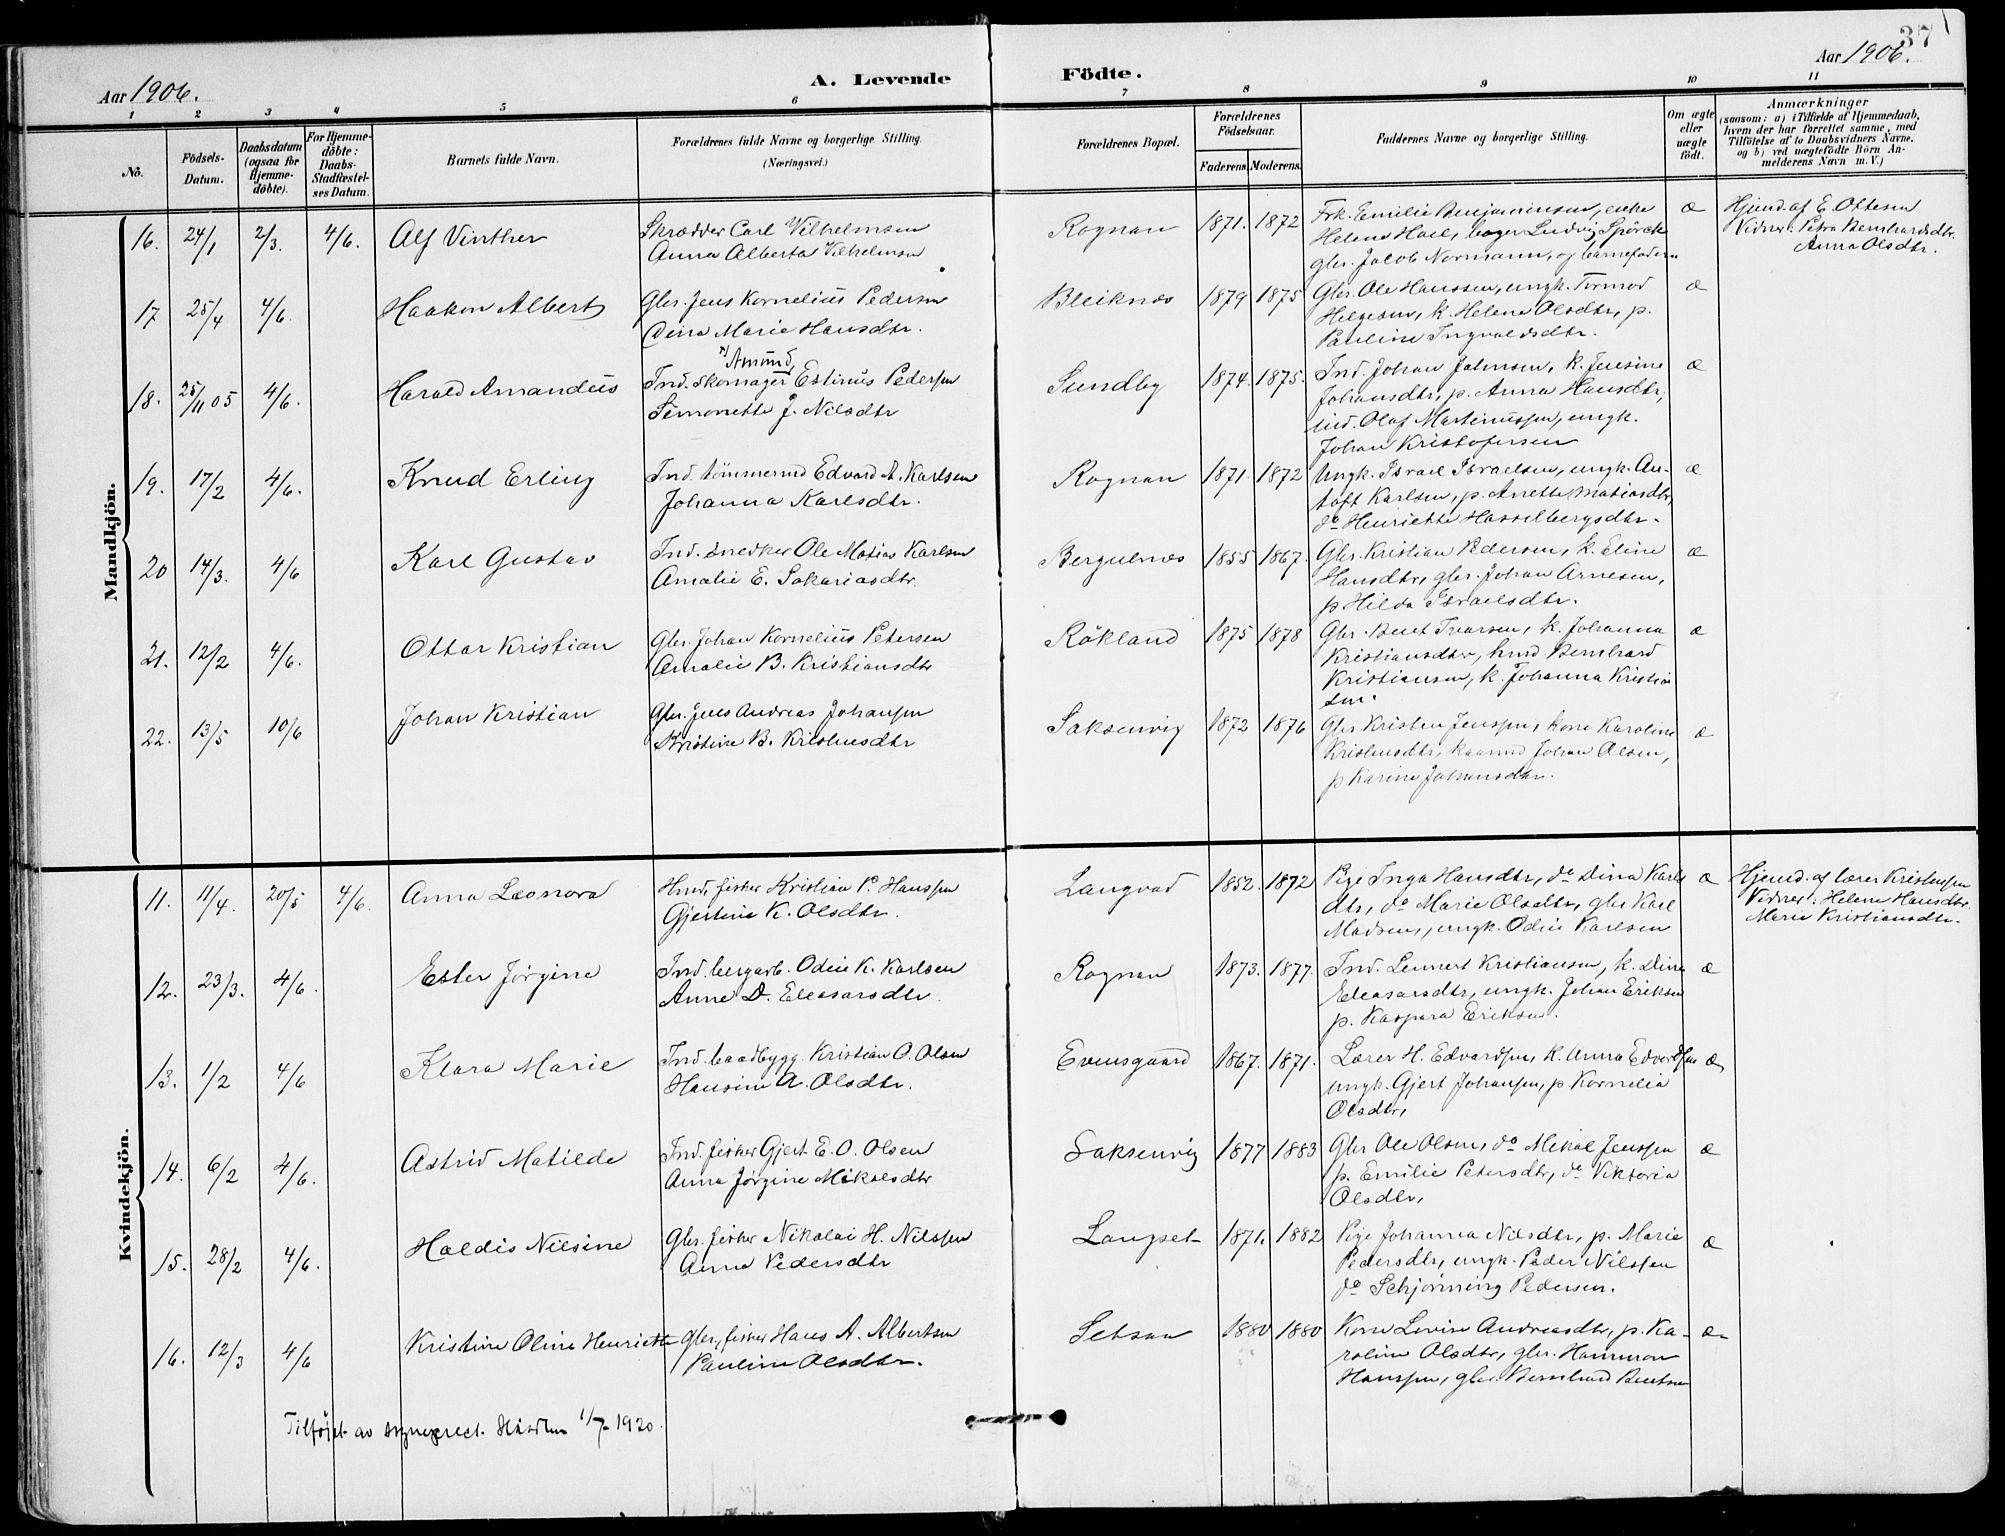 37
Aar 1906. A. Levende Födte. Aar 1906.
1 2 3 4 5 6 7 8 9 10 11
No.
Födsels-Datum.
Daabsdatum (ogsaa for Hjemmedöbte).
For Hjemmedöbte: Daabs-Stadfæstelses Datum.
Barnets fulde Navn.
Forældrenes fulde Navne og borgerlige Stilling.
(Næringsvei.)
Forældrenes Bopæl.
Forældrenes Födselsaar.
Faderens. Moderens.
Faddernes Navne og borgerlige Stilling.
Om ægte eller uægte födt.
Anmærkninger
(saasom: a) i Tilfælde af Hjemmedaab,
hvem der har forrettet samme, med
Tilföielse af to Daabsvidners Navne,
og b) ved uægtefödte Börn Anmelderens Navn m. V.)
Mandkjön.
16. 24/1 2/3. 4/6. Alf Vinther
Skrædder Carl Vilhelmsen
Anna Alberta Vilhelmsen
Rognan 1871. 1872
Frk. Emilie Benjaminsen, enke
Helene Hoel, bager Ludvig Spörck
gbr. Jacob Normann, og barnefaderen
æ
Hjemd. af E. Ottesen
Vidner: Petra Bernhardsdtr.
Anna Olsdtr.
17 25/4 4/6. Haakon Albert
Gbr. Jens Kornelius Pedersen
Dina Marie Hansdtr.
Bleiknes 1879 1875
Gbr. Ole Hanssen, ungk. Tormod
Helgesen, k. Helene Olsdtr, p.
Pauline Ingvaldsdtr.
æ
18. 25/11 05 4/6. Harald Amandus
Amund,
Ind. skomager Estinus Pedersen
Simonette J. Nilsdtr
Sundby 1874. 1875.
Ind. Johan Johnsen, k. Jensine
Johansdtr, p. Anna Hansdtr,
ind. Olaf Martinussen, ungk.
Johan Kristofersen
æ
19. 17/2 4/6. Knud Erling
Ind. tömmermd Edvard A. Karlsen
Johanna Karlsdtr.
Rognan 1871. 1872
Ungk. Israel Israelsen, ungk. An-
toft Karlsen, p. Anette Matiasdtr,
do Henriette Hasselbergsdtr.
æ
20 14/3. 4/6 Karl Gustav
Ind. snedker Ole Matias Karlsen
Amalie E. Sakariasdtr.
Bergulnes 1855 1867.
Gbr. Kristian Pedersen, k. Eline
Hansdtr, gbr. Johan Arnesen,
p. Hilda Israelsdtr.
æ
21. 12/2 4/6. Ottar Kristian
Gbr. Johan Kornelius Petersen
Amalie B. Kristiansdtr
Rökland 1875 1878
Gbr. Bent Ivarsen, k. Johanna
Kristiansdtr, hmd Bernhard
Kristiansen, k. Johanna Kristian
sen.
æ
22. 13/5 10/6 Johan Kristian
Gbr. Jens Andreas Johansen
Kristine B. Kristensdtr
Saksenvig 1872 1876
Gbr Kristen Jenssen, kone Karoline
Kristensdtr, kaarmd Johan Olsen,
p Karine Johansdtr.
æ
Kvindekjön.
11. 11/4. 20/5 4/6. Anna Leonora
Hmd, fisker Kristian P. Hanssen
Gjertine K. Olsdtr.
Langvad 1852. 1872
Pige Inga Hansdtr, do Dina Karls
dtr, do Marie Olsdtr, gbr Karl
Madsen, ungk. Odin Karlsen
æ
Hjemd. af lærer Kristensen
Vidner: Helene Hansdtr.
Marie Kristiansdtr.
12. 23/3. 4/6. Ester Jørgine
Ind. bergarb. Odin K. Karlsen
Anne D. Eleasarsdtr.
Rognan 1873. 1877.
Ind. Lennert Kristiansen, k. Dina
Eleasarsdtr, ungk. Johan Eriksen
p. Kaspara Eriksen.
æ
13. 1/2 4/6 Klara Marie
Ind. baadbygg. Kristian O. Olsen
Hansine A. Olsdtr.
Evensgaard 1867. 1871.
Lærer H. Edvardsen, k. Anna Edvardsen
ungk. Gjert Johansen, p. Kornelia
Olsdtr,
æ
14. 6/2 4/6. Astrid Matilde
Ind. fisker Gjert E. O. Olsen
Anna Jørgine Mikalsdtr
Saksenvig 1877 1883
Gbr Ole Olsen, do Mikal Jenssen
p. Emilie Petersdtr, do Viktoria
Olsdtr,
æ
15. 28/2 4/6. Haldis Nilsine
Gbr. fisker Nikolai H. Nilssen
Anna Pedersdtr
Langset 1871. 1882
Pige Johanna Nilsdtr, p. Marie
Pedersdtr, ungk. Peder Nilssen
do Schjönning Pedersen.
æ
16. 12/3 4/6 Kristine Oline Henriette
Gbr, fisker Hans A. Albertsen
Pauline Olsdtr.
Setsaa 1880 1880
Kone Lovise Andreasdtr, p. Ka-
roline Olsdtr, gbr. Hammon
Hanssen, gbr. Bernhard Bentsen
æ
Tilføiet av sogneprest 1/7-1920.